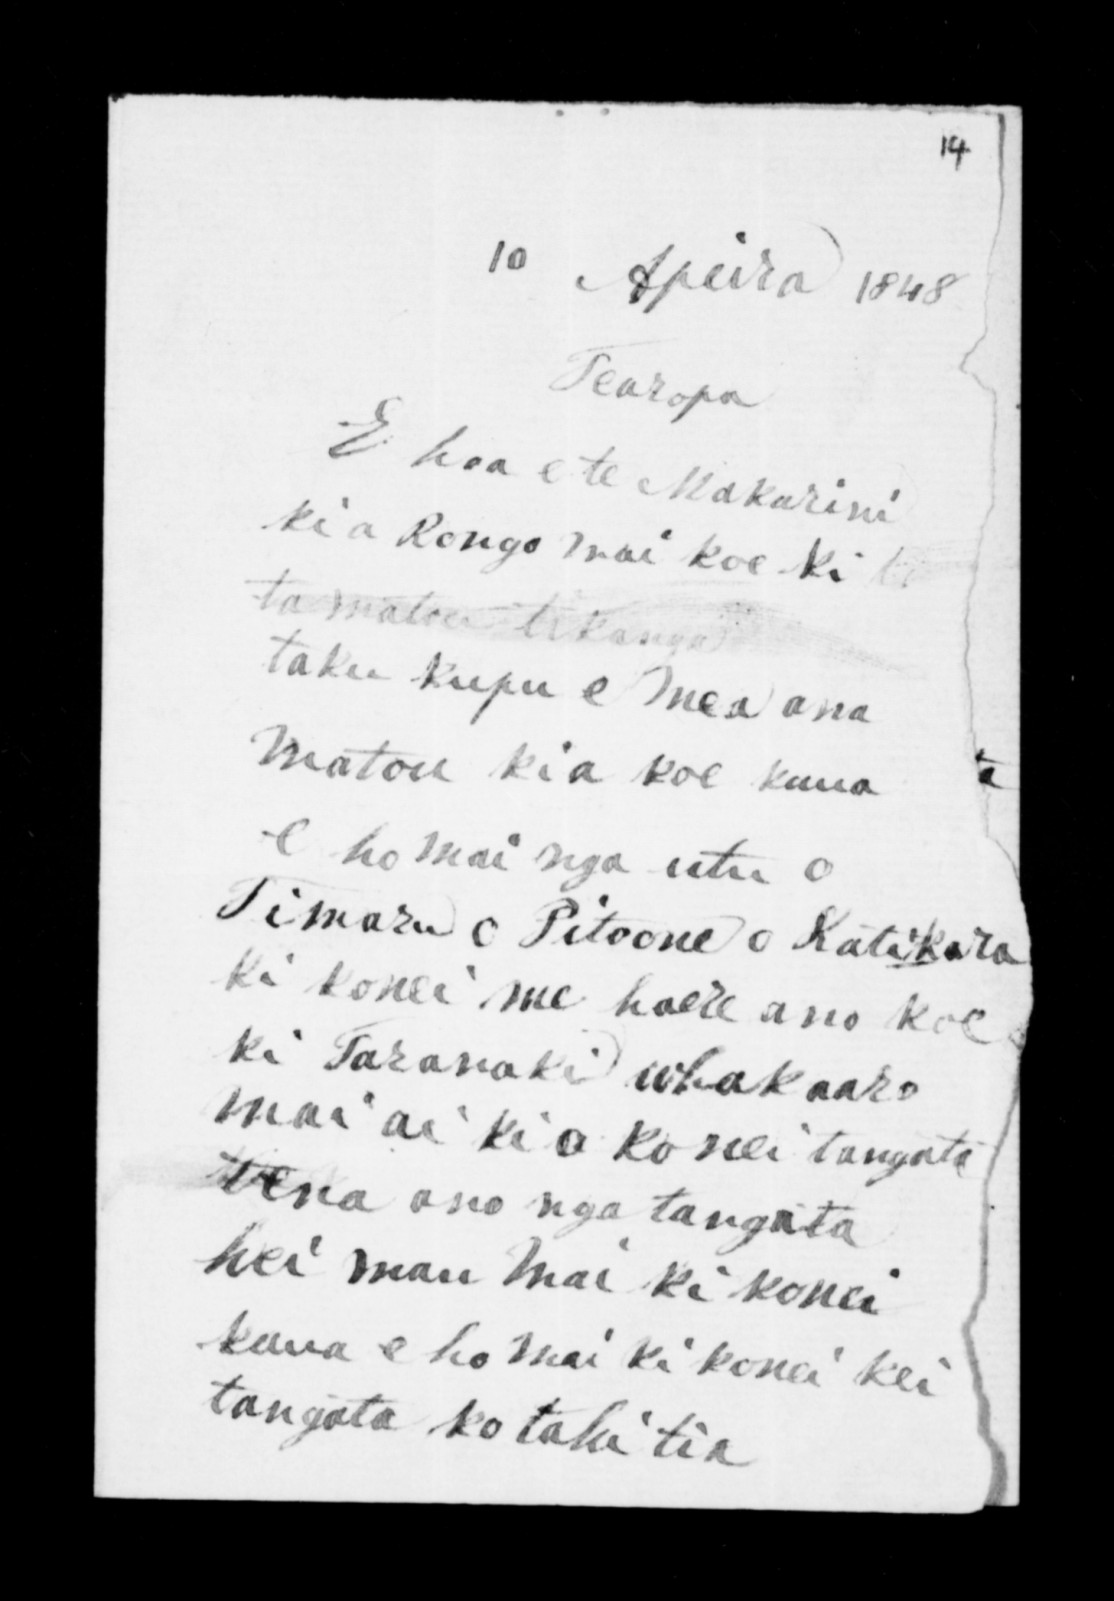 14
10 Apeira 1848
Tearopa
E hoa e te Makarini
kia Rongo mai koe ki
ta matou tikanga
taku kupu e mea ana
matou kia koe kaua
ta
e homai nga utu o
Timaru o Pitoone o Katikara
ki konei me haere ano koe
ki Taranaki whakaaro
mai ai ki o konei tangata
tena ano nga tangata
hei mau mai ki konei
kaua e ho mai ki konei kei
tangata ko tahi tia